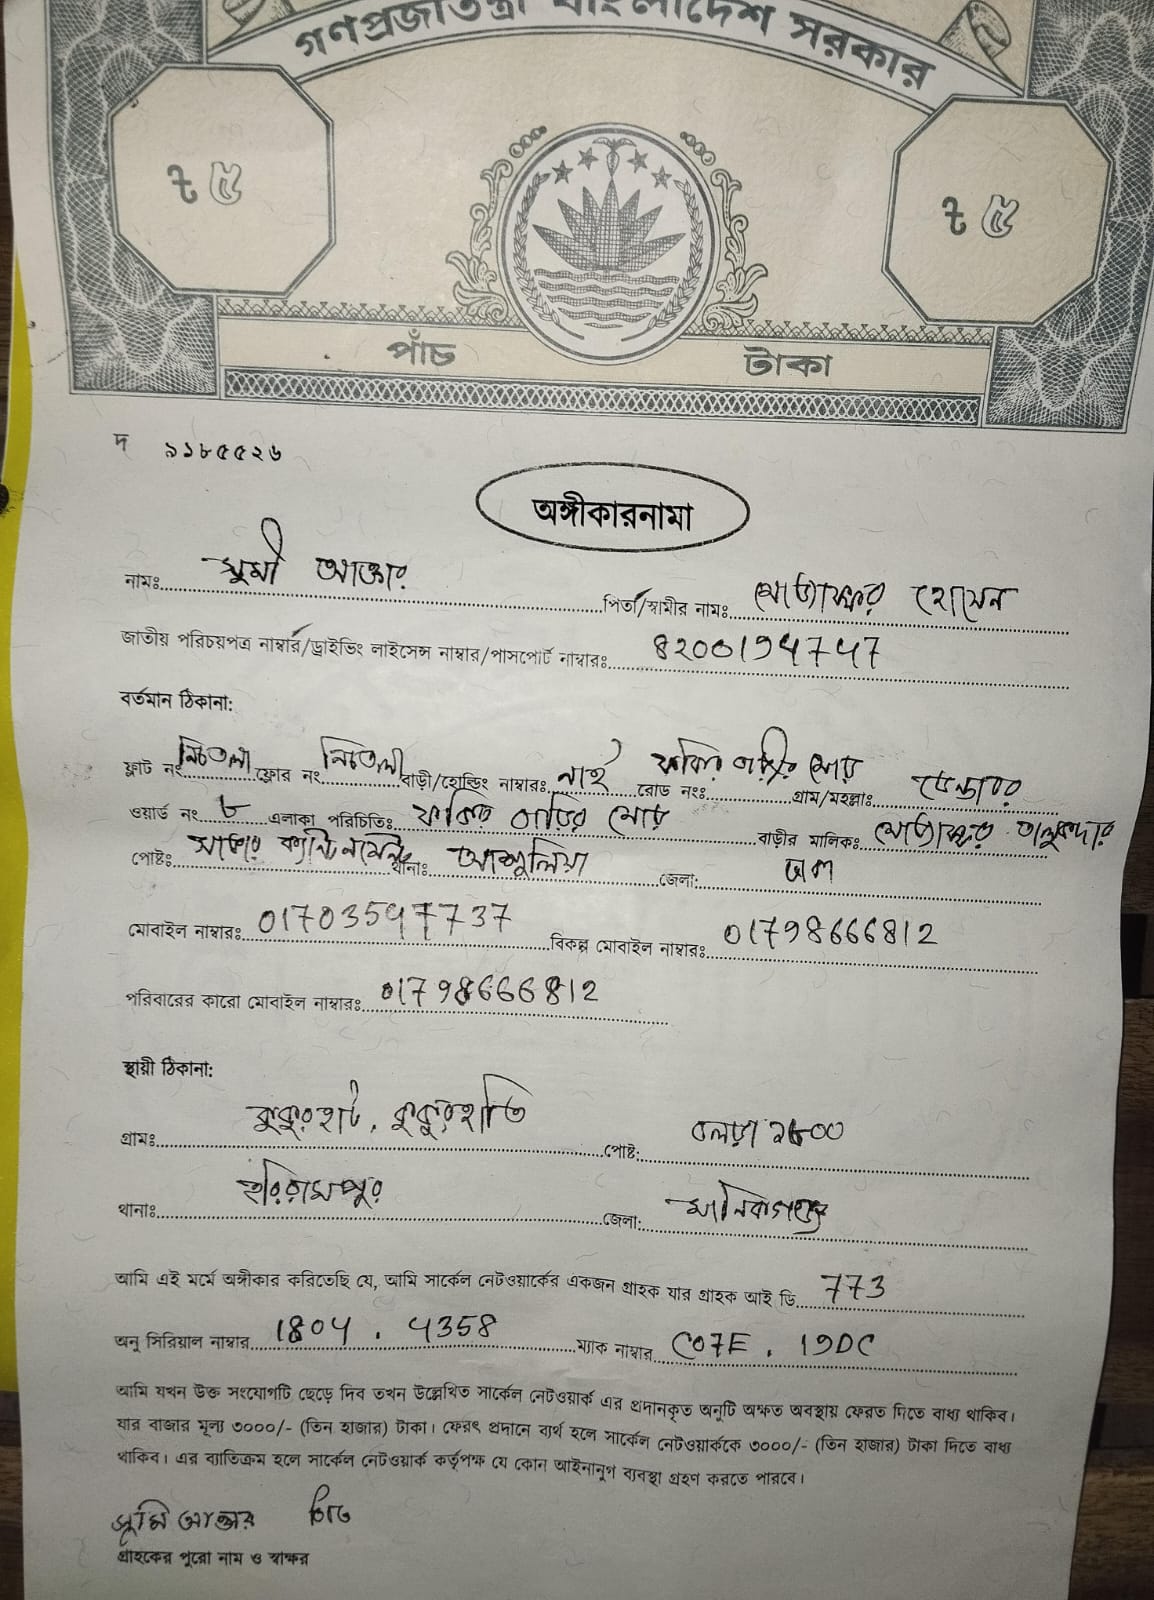 গণপ্রজাতন্ত্রী বাংলাদেশ সরকার
৳ ৫ ৳ ৫
পাঁচ টাকা
দ ৯১৮৫৫২৬
অঙ্গীকারনামা
নামঃ সুমী আক্তার পিতা/স্বামীর নামঃ মোতাফ্ফর হোসেন
জাতীয় পরিচয়পত্র নাম্বার/ড্রাইভিং লাইসেন্স নাম্বার/পাসপোর্ট নাম্বারঃ
বর্তমান ঠিকানা:
ফ্লাট নং নিচতলা ফ্লোর নং নিচতলা বাড়ী/হোল্ডিং নাম্বারঃ নাই রোড নংঃ ফকির বাড়ীর মোড় গ্রাম/মহল্লাঃ
ওয়ার্ড নং ৮ এলাকা পরিচিতিঃ ফকির বাড়ির মোড় বাড়ীর মালিকঃ মোতাফ্ফর তালুকদার
পোষ্টঃ সাভার ক্যান্টনমেন্ট থানাঃ আশুলিয়া জেলা: ঢাকা
মোবাইল নাম্বারঃ বিকল্প মোবাইল নাম্বারঃ 01798666812
পরিবারের কারো মোবাইল নাম্বারঃ 01798666812
স্থায়ী ঠিকানা:
গ্রামঃ পোষ্ট:
থানাঃ হরিরামপুর জেলা: মানিকগঞ্জ
আমি এই মর্মে অঙ্গীকার করিতেছি যে, আমি সার্কেল নেটওয়ার্কের একজন গ্রাহক যার গ্রাহক আই ডি 773
অনু সিরিয়াল নাম্বার 1804 . 4358 ম্যাক নাম্বার C07E . 19DC
আমি যখন উক্ত সংযোগটি ছেড়ে দিব তখন উল্লেখিত সার্কেল নেটওয়ার্ক এর প্রদানকৃত অনুটি অক্ষত অবস্থায় ফেরত দিতে বাধ্য থাকিব।
যার বাজার মূল্য ৩০০০/- (তিন হাজার) টাকা। ফেরৎ প্রদানে ব্যর্থ হলে সার্কেল নেটওয়ার্ককে ৩০০০/- (তিন হাজার) টাকা দিতে বাধ্য
থাকিব। এর ব্যাতিক্রম হলে সার্কেল নেটওয়ার্ক কর্তৃপক্ষ যে কোন আইনানুগ ব্যবস্থা গ্রহণ করতে পারবে।
সুমি আক্তার
গ্রাহকের পুরো নাম ও স্বাক্ষর